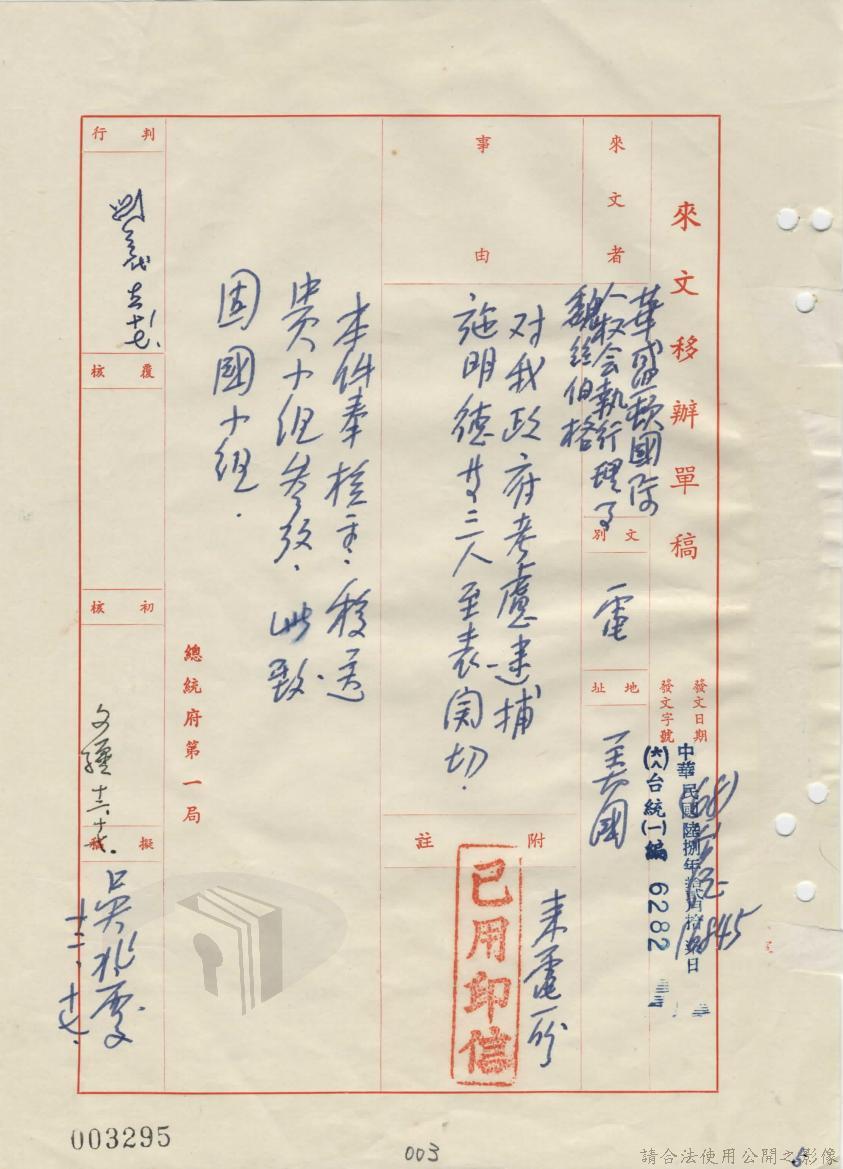 來文移辦單稿
發文日期
發文字號
中華民國陸捌年拾貳月拾柒日
(六八)台統(一)編 6282
(68)
16845
來文者
華盛頓國際
人权会執行理事
魏絲伯格
文別
電
地址
美國
事由
对我政府考慮逮捕
施明德等三人至表関切.
附註
来電一份
已用印信
本件奉核示.移送
貴小組參攷.此致
固國小組.
總統府第一局
判行
覆核
初核
擬稿
十二、十七、
003295
003
請合法使用公開之影像